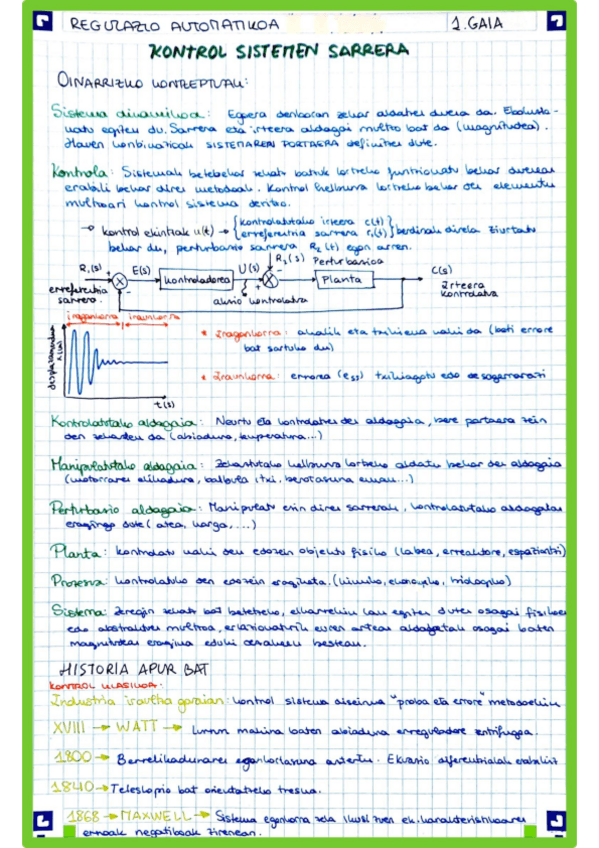 REGULAZIO AUTOMATIKOA
1.GAIA
KONTROL SISTEMEN SARRERA
OINARRIZKO KONTZEPTUAK:
Sistema dinamikoa: Egoera denboran zehar aldatzen duena da. Eboluzio-
natu egiten du. Sarrera eta irteera aldagai multzo bat da (magnitudea).
Hauen konbinazioak SISTEMAREN PORTAERA definitzen dute.
Kontrola: Sistemak betebehar zehatz batzuk lortzeko funtzionatu behar duenean
erabili behar diren metodoak. Kontrol helburua lortzeko behar den elementu
multzoari kontrol sistema deritzo.
→ kontrol ekintzak u(t) → {kontrolatutako irteera c(t) erreferentzia sarrera r₁(t)} berdinak direla ziurtatu
behar du, perturbazio sarrera R₂(t) egon arren.
R₂(s) Perturbazioa
R₁(s) + E(s) Kontroladorea U(s) + Planta C(s)
erreferentzia sarrera.
akzio kontrolatua
Irteera kontrolatua
iragankorra iraunkorra
t(s)
* Iragankorra: ahalik eta txikiena nahi da (beti errore
bat sartuko du)
* Iraunkorra: errorea (ess) txikiagotu edo desagerrarazi
Kontrolatutako aldagaia: Neurtu eta kontrolatzen den aldagaia, bere portaera zein
den zehazten da (abiadura, tenperatura...)
Manipulatutako aldagaia: Zehaztutako helburua lortzeko aldatu behar den aldagaia
(motorraren elikadura, balbula itxi, berotasuna eman...)
Perturbazio aldagaia: Manipulatu ezin diren sarrerak, kontrolatutako aldagaian
eragingo dute (atea, karga, ...)
Planta: kontrolatu nahi den edozein objektu fisiko (labea, erreaktore, espaziontzi)
Prozesua: kontrolatuko den edozein eragiketa. (kimiko, ekonomiko, biologiko)
Sistema: Zeregin zehatz bat betetzeko, elkarrekin lan egiten duten osagai fisikoen
edo abstraktuen multzoa, erlazionaturik euren artean aldagaietan osagai baten
magnitudean eragina eduki dezakeen bestean.
HISTORIA APUR BAT
KONTROL KLASIKOA:
Industria iraultza garaian: kontrol sistema diseinua "proba eta errore" metodoekin
XVIII → WATT → Lurrun makina baten abiadura erreguladore zentrifugoa.
1800 → Berrelikaduraren egonkortasuna aztertu. Ekuazio diferentzialak erabiliz
1840 → Teleskopio bat orientatzeko tresna.
1868 → MAXWELL → Sistema egonkorra zela ikusi zuen ek. karakteristikoaren
erroak negatiboak zirenean.